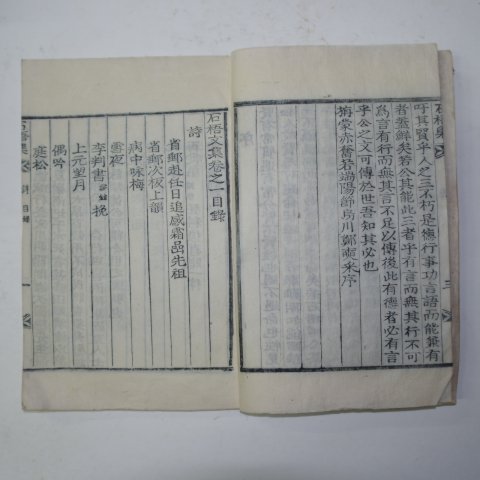 石梧集
吁其賢乎人之三不朽是惟行事功言語而能兼有
者蓋鮮矣若公其能此三者乎有言而無其行不可
爲言有行而無其言不足以傳後此有德者必有言
乎公之文可傳於世吾知其必也
赤奮若端陽節烏川鄭 采序
三
石梧文集卷之一目錄
詩
省鄕赴任日追感霜嵒先祖
省鄕次板上韻
病中咏梅
雪夜
李判書 挽
上元望月
偶吟
庭松
石梧集
詩 目錄
一